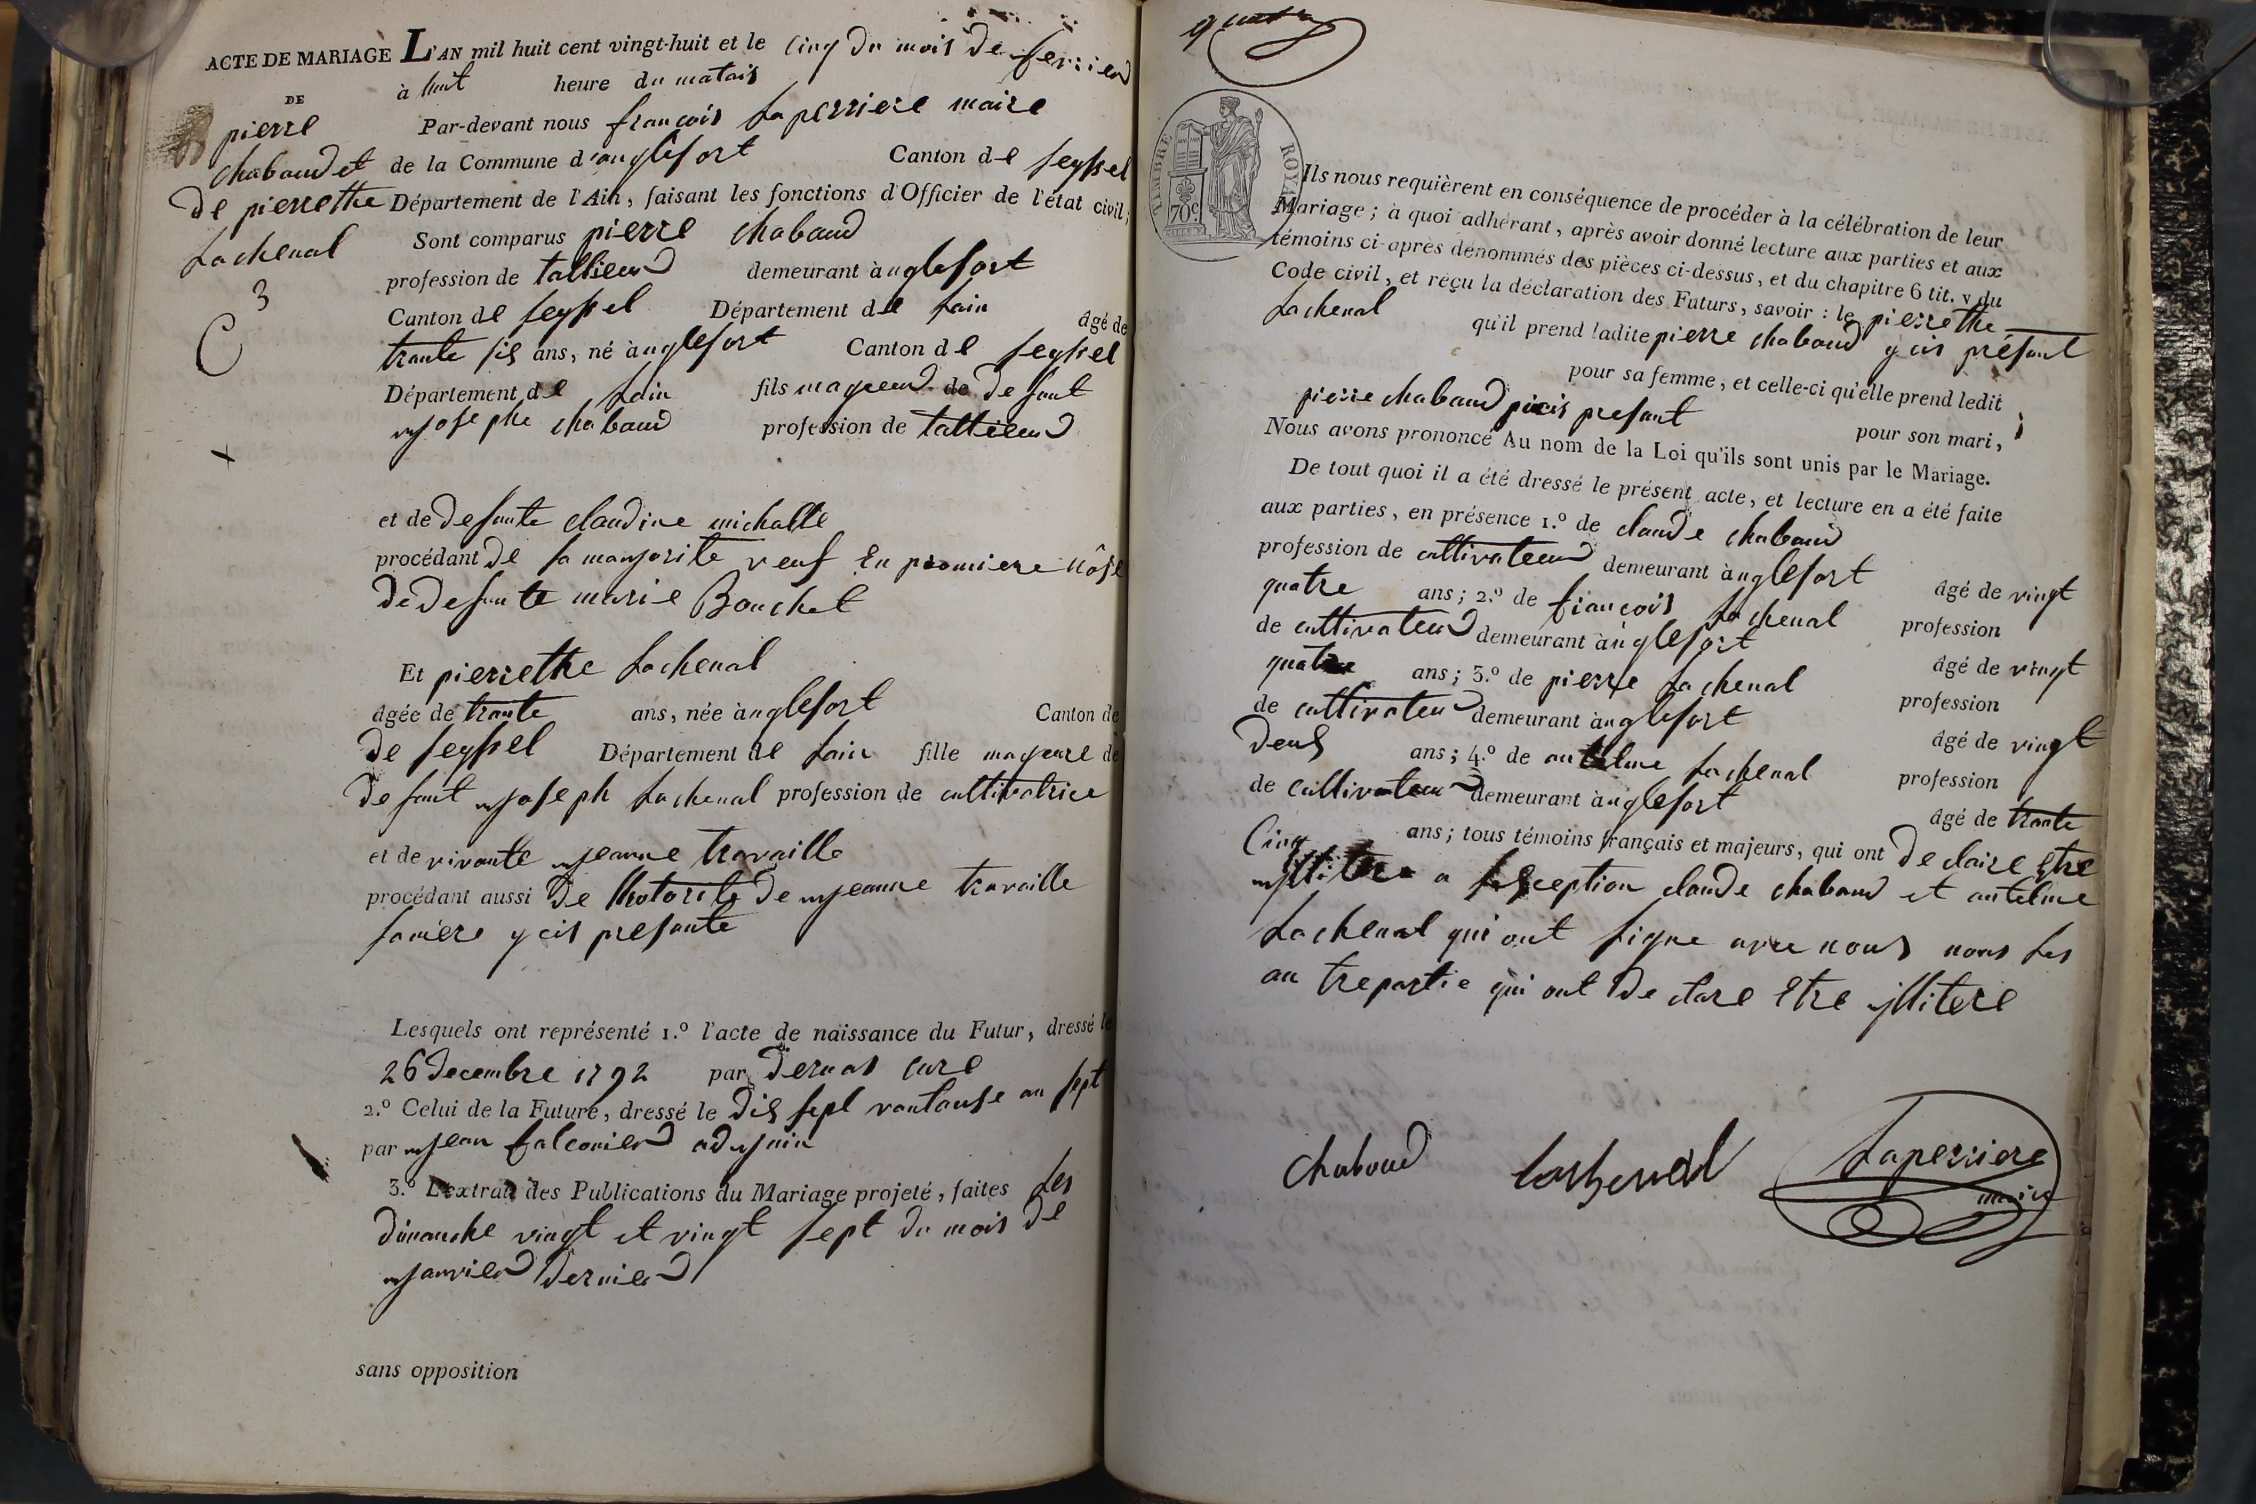 ACTE DE MARIAGE L'AN mil huit cent vingt-huit et le cinq du mois de ferrier
DE à huit heure du matais
pierre Par-devant nous francois Laperriere maire
chabaud et de la Commune d'anglefort Canton de seyssel
de pierrethe Département de l'Ain, faisant les fonctions d'Officier de l'état civil;
Lachenal Sont comparus pierre chabaud
profession de tallieur demeurant à nglefort
3 Canton de seyssel Département de Lain âgé de
C trante sis ans, né à nglefort Canton de seyssel
Département de Lain fils mageur de defunt
josephe chabaud profession de tallieur
et de defunte claudine michalle
procédant de sa manjorite veuf En promiere nôse
de defunte marie Bouchet
Et pierrethe Lachenal
âgée de trante ans, née à nglefort Canton de
de seyssel Département de Lain fille mageure de
defunt joseph Lachenal profession de cultivatrice
et de vivante jeanne travaille
procédant aussi de lhotorite de jeanne travaille
samere ycis presante
Lesquels ont représenté 1.º l'acte de naissance du Futur, dressé le
26 decembre 1792 par dernas cure
2.º Celui de la Future, dressé le dis sept vantause an sept
par jean falconier adjoin
3.º L'extrait des Publications du Mariage projeté, faites Les
dimanche vingt et vingt sept du mois de
janvier dernier
sans opposition
quatre
TIMBRE ROYAL
70c
Ils nous requièrent en conséquence de procéder à la célébration de leur
Mariage; à quoi adhérant, après avoir donné lecture aux parties et aux
témoins ci-après dénommés des pièces ci-dessus, et du chapitre 6 tit. v du
Code civil, et reçu la déclaration des Futurs, savoir: le pierrethe
Lachenal qu'il prend ladite pierre chabaud ycis présant
pour sa femme, et celle-ci qu'elle prend ledit
pierre chabaud presant pour son mari,
Nous avons prononcé Au nom de la Loi qu'ils sont unis par le Mariage.
De tout quoi il a été dressé le présent acte, et lecture en a été faite
aux parties, en présence 1.º de claude chabaud
profession de cultivateur demeurant à nglefort âgé de vingt
quatre ans; 2.º de francois Lachenal profession
de cultivateur demeurant à nglefort âgé de vingt
quatre ans; 3.º de pierre Lachenal profession
de cultivateur demeurant à nglefort âgé de vingt
deus ans; 4.º de antelme Lachenal profession
de cultivateur demeurant à nglefort âgé de trante
Cinq ans; tous témoins français et majeurs, qui ont de claire etre
a seception claude chabaud et antelme
Lachenal qui ont signe avec nous nons Les
au trepartie qui ont de clare etre illitere
chaboud Lachenal Laperriere
maire